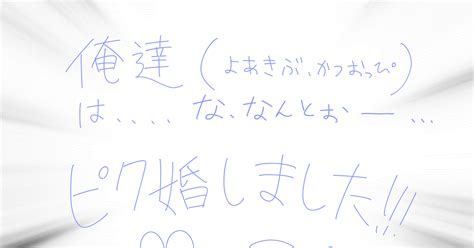 俺達(よあきぶ、かつおっぴ)
は、、、、な、なんとぉー...
ピク婚しました!!!